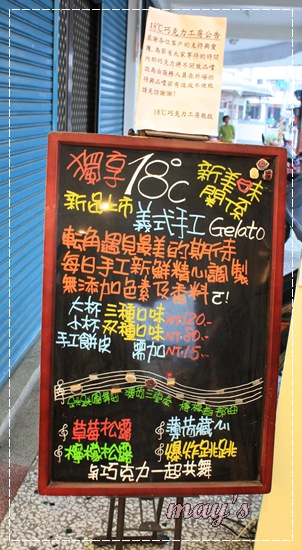 18℃巧克力工房公告
18℃巧克力工房敬啟
獨享18℃
新美味
關係
新品上市
義式手工Gelato
轉角遇見最美的期待
每日手工新鮮精心調製
無添加色素及香料ㄛ!
大杯 三種口味 NT120.-
小杯 双種口味 NT80.-
手工餅皮 需加NT15.-
草莓松露
檸檬松露
薄荷藏心
爆炸跳跳
與巧克力一起共舞
may's